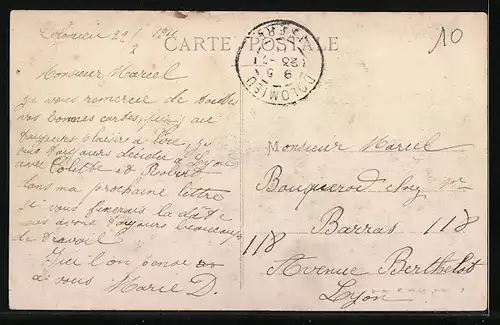 CARTE POSTALE
DOLOMIEU
ISÈRE
10
Monsieur Mariel
je vous remercie de toutes
vos bonnes cartes, qui, au
toujours plaisir à lire, je
suis toujours décidée à Lyon
avec Colette et Robert
dans ma prochaine lettre
je vous fixerais la date
nous avons toujours beaucoup
de travail
Ici l'on pense
à vous Marie D.
Monsieur Mariel
chez Mr
Barras 118
118
Avenue Berthelot
Lyon